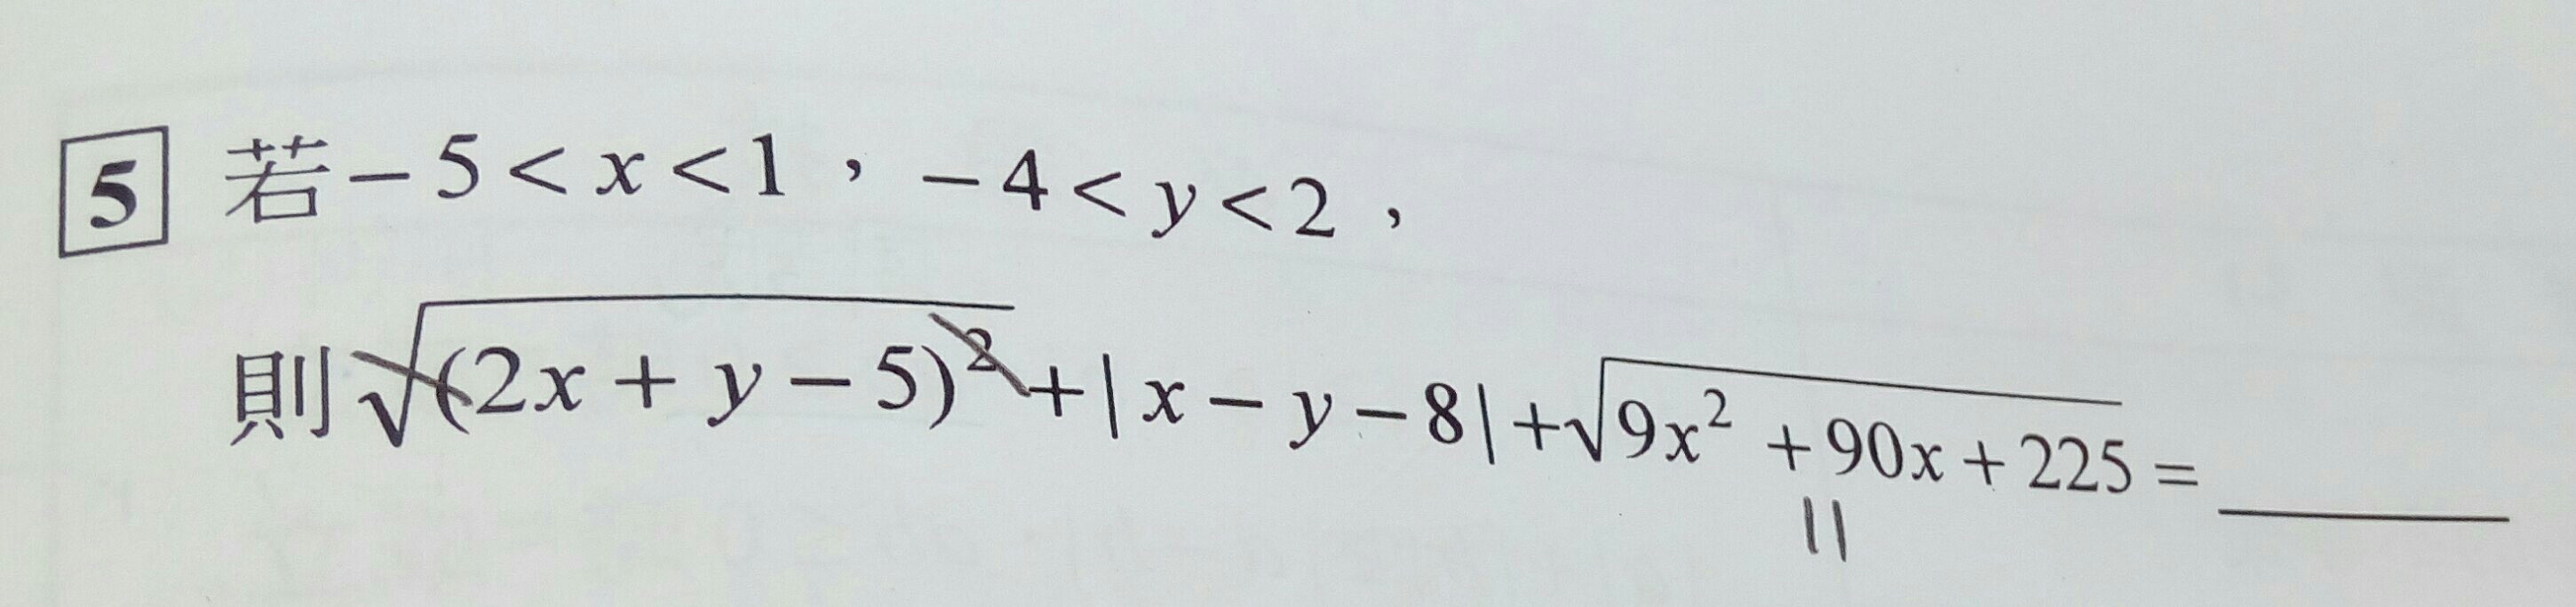 5 若－5＜x＜1，－4＜y＜2，
則√(2x＋y－5)²＋|x－y－8|＋√9x²＋90x＋225＝____
||